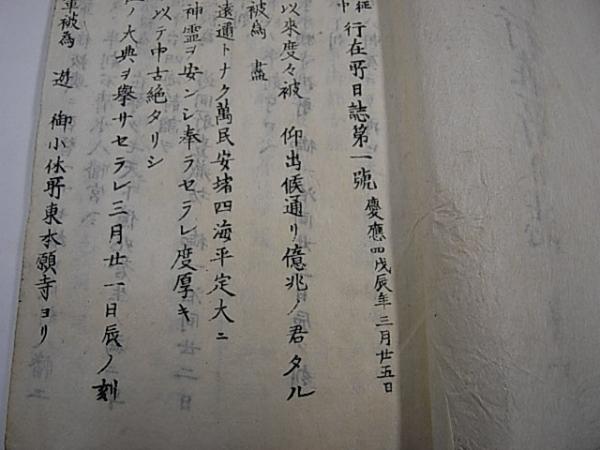 征
中
行在所日誌第一號 慶應四戊辰年三月廿五日
以來度々被 仰出候通リ億兆ノ君タル
被為 盡
遠邇トナク萬民安堵四海平定大ニ
神霊ヲ安ンシ奉ラセラレ度厚キ
以テ中古絶タリシ
ノ大典ヲ擧サセラレ三月廿一日辰ノ刻
被為 遊 御小休所東本願寺ヨリ